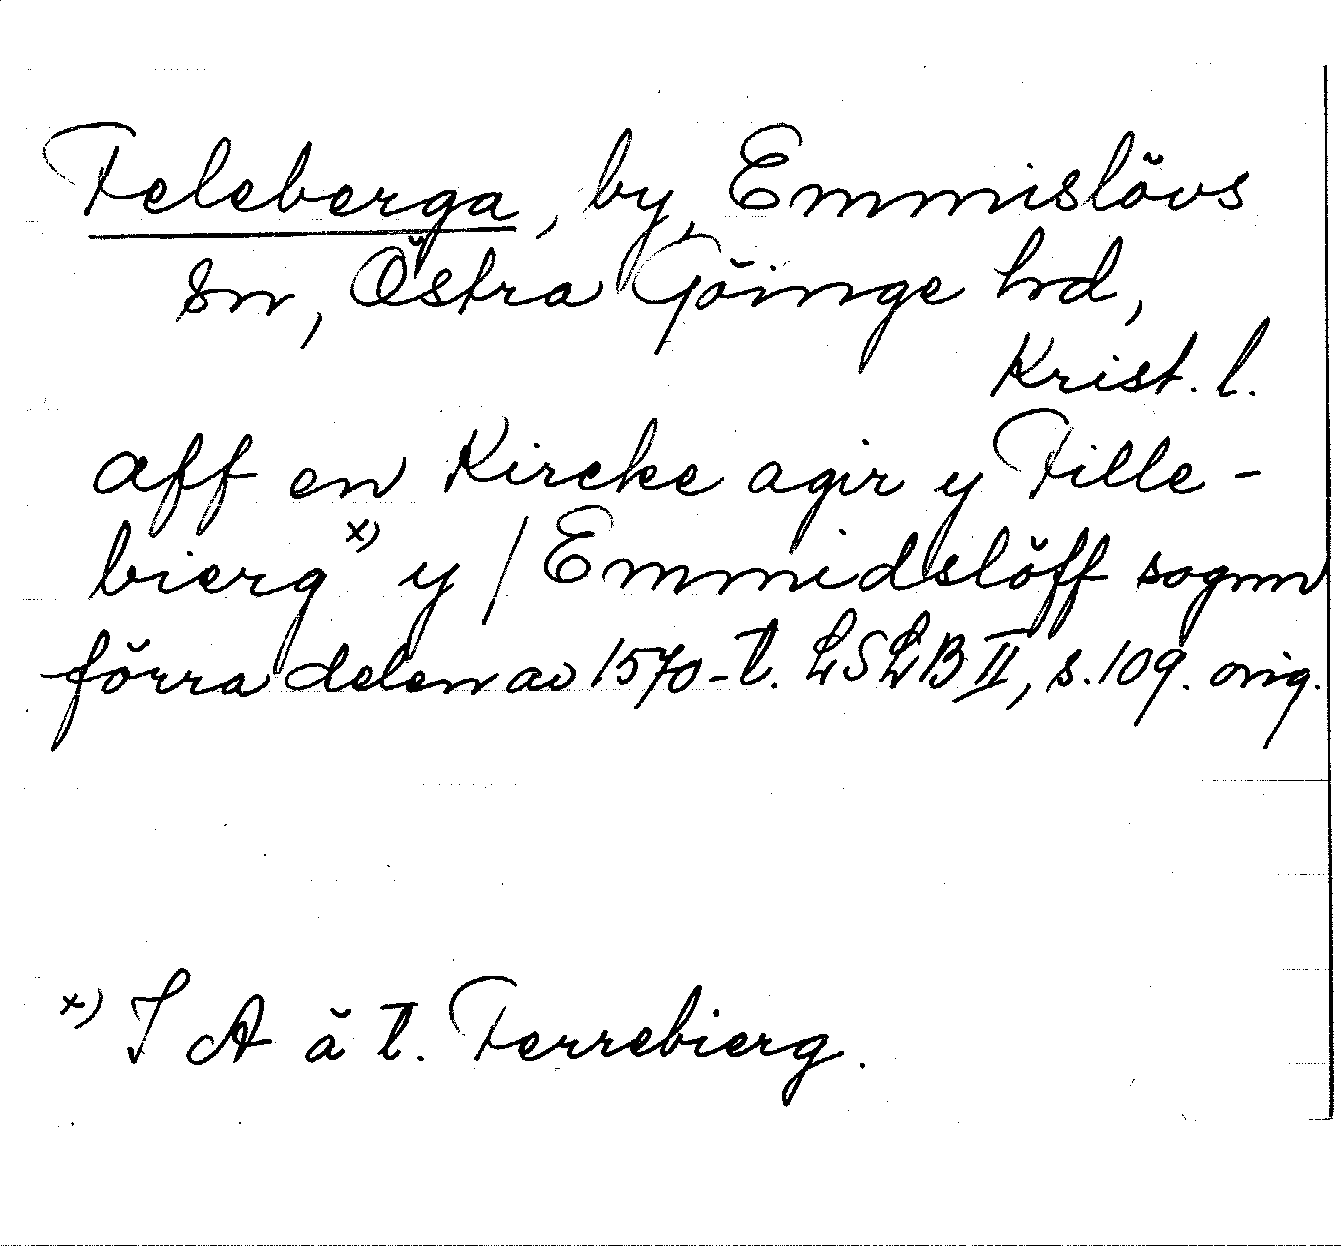 Teleberga, by, Emmislövs
sn, Östra Göinge hd,
Krist. l.
aff en Kircke agir y Tille-
bierg x) y / Emmidslöff sognn
förra delen av 1570-t. LSLB II, s. 109. orig.
x) I A å t. Terrebierg.